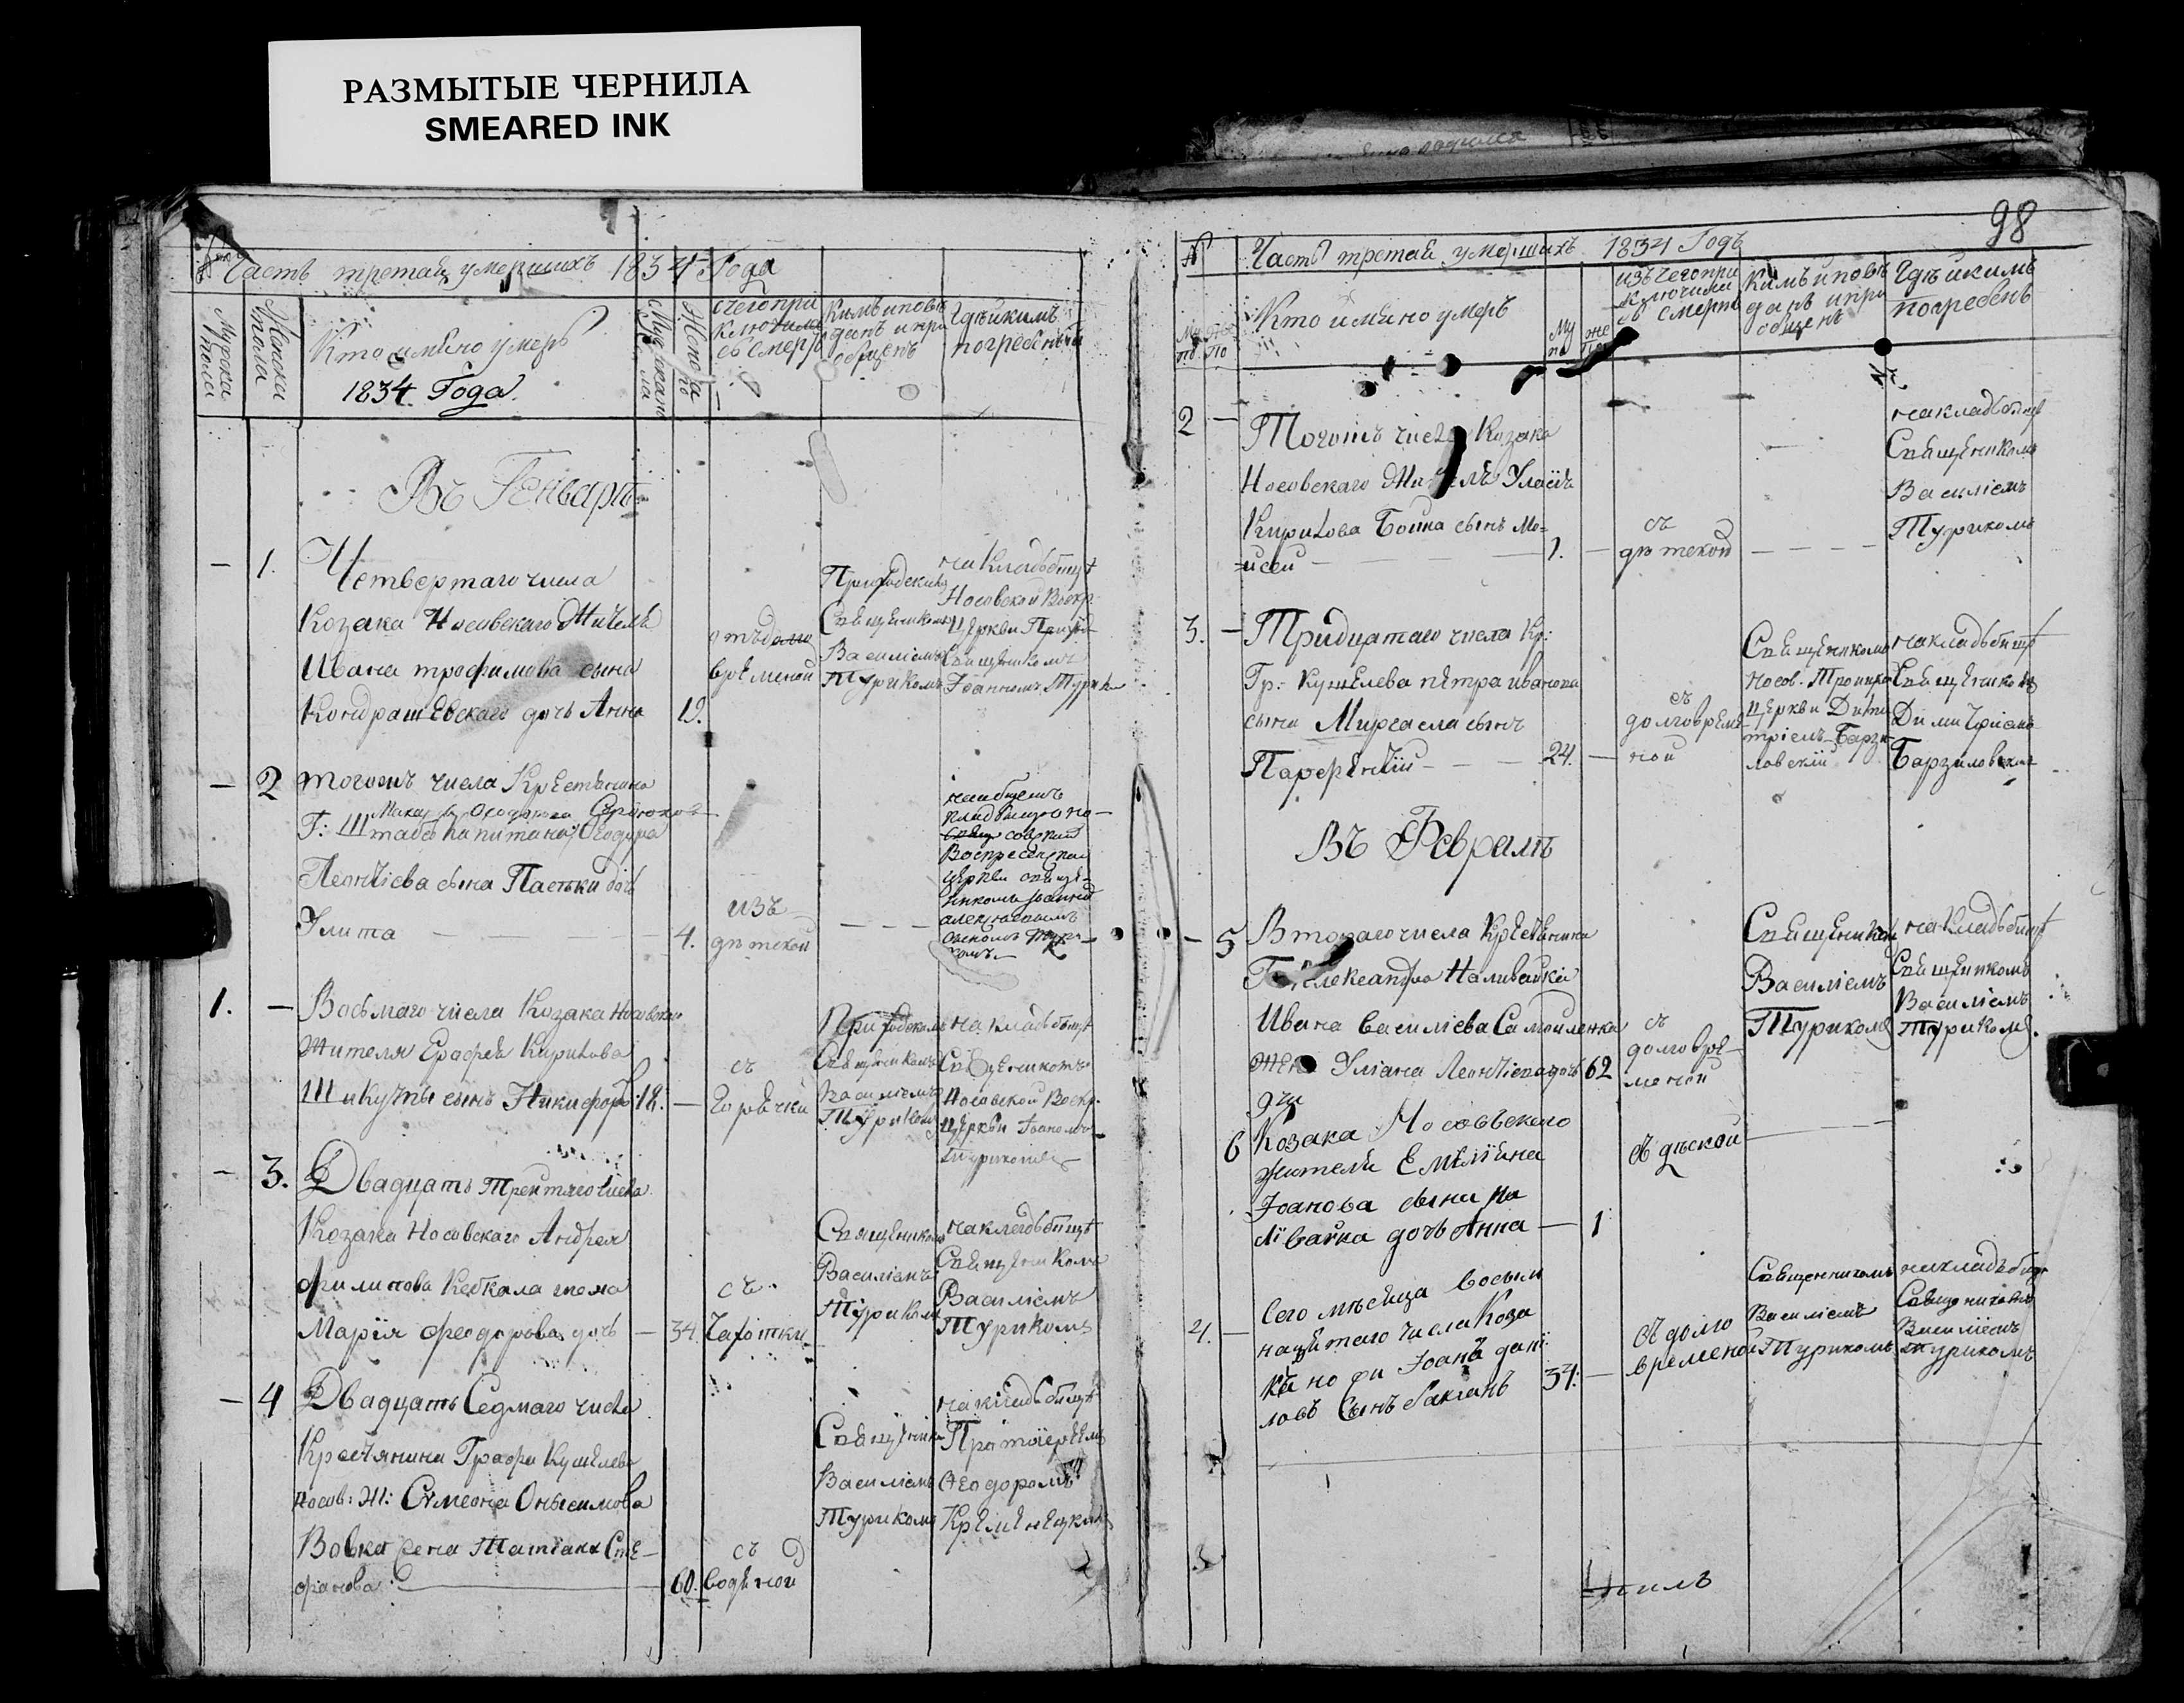 РАЗМЫТЫЕ ЧЕРНИЛА
SMEARED INK
98
Часть третая умершихъ 1834 Года
Мужска пола
Женска пола
Кто имяно умеръ
1834 Года.
Кимъ исповѣ
данъ и при
общенъ
Гдѣ и кимъ
погребены
Въ Генварѣ
— 1.
Четвертаго числа
Козака Носовскаго Жителя
Ивана трофимова сына
Кондрашевскаго дочь Анна
19.
отъ долго
временой
Приходскимъ
Священикомъ
Василіемъ
Турикомъ
на кладбищѣ
Носовской Воскр.
Церкви
Священикомъ
Іоанномъ
— 2
тогожъ числа Крестянина
Г: Штабс капитана Ѳеодура
Леонтіева сына дочь
Улита — 4.
изъ
дѣтской
на общемъ
кладбищѣ но-
совской
Воскресенской
церкви свяще-
никомъ
1. —
Восьмаго числа Козака Носовскаго
жителя Ерофея Кирилова
Шикуты сынъ Никифоръ 18. —
съ
горячки
Приходскимъ
Священикомъ
Василіемъ
Турикомъ
на кладбищѣ
Священикомъ
Носовской Воскр.
Церкви Іоаномъ
Турикомъ
— 3.
Двадцать Третяго числа
Козака Носовскаго Андрея
Филипова Кебкала жена
Марія Феодорова дочь — 34.
съ
Чахотки
Священикомъ
Василіемъ
Турикомъ
на кладбищѣ
Священикомъ
Василіемъ
Турикомъ
— 4
Двадцать Седмаго числа
Крестянина Графа Кушелева
Носов: Ж: Симеона Онысимова
Вовка жена Татіана Сте-
фанова — 60.
съ
водяной
Священико
Василіемъ
Турикомъ
на кладбищѣ
Протоіереемъ
Ѳеодоромъ
№ Часть третая умершихъ 1834 Годъ
Кто имяно умеръ
изъ чего при
ключила
съ смерть
Кимъ исповѣ
данъ и при
общенъ
Гдѣ и кимъ
погребенъ
2 —
Тогожъ числа Козака
Носовскаго
Кирилова Бойка сынъ Мо-
исей — 1. —
съ
дѣтской
на кладбищѣ
Священикомъ
Василіемъ
Турикомъ
3. —
Тридцатаго числа Кр:
Гр: Кушелева Петра иванова
сына сынъ
Парфентій — 24. —
съ
долговреме
ной
Священикомъ
Носов. Троицкой
Церкви Дими
тріемъ Барзи
ловскій
на кладбищѣ
Священикомъ
Димитріемъ
Барзиловским
Въ Февралѣ
— 5
Втораго числа Крестянина
Г: Александра Наливайка
Ивана Василіева Самойленка
жена Уліана Леонтіева дочь 62
съ
долговре-
меной
Священикомъ
Василіемъ
Турикомъ
на кладбищѣ
Священикомъ
Василіемъ
Турикомъ.
6
Козака Носовскаго
жителя Емиліяна
Іоанова сына На
ливайка дочь Анна — 1
съ дѣской
4. —
Сего мѣсяца восьм
надцятаго числа Коза
къ Іоанъ дани
ловъ Сынъ 34. —
съ долго
временой
Священникомъ
Василіемъ
Турикомъ
на кладбищѣ
Священикомъ
Василіемъ
Турикомъ